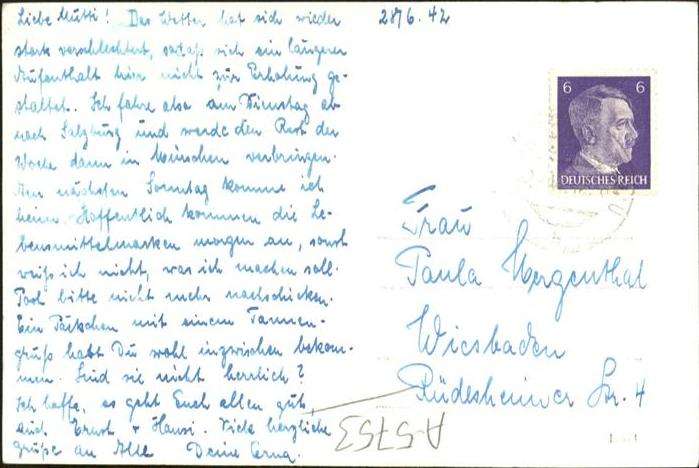 Liebe Mutti! Das Wetter hat sich wieder
stark verschlechtert, sodaß sich ein längerer
Aufenthalt hier nicht zur Erholung ge-
staltet. Ich fahre also am Dienstag ab
nach Salzburg und werde den Rest der
Woche dann in München verbringen.
Am nächsten Sonntag komme ich
heim. Hoffentlich kommen die Le-
bensmittelmarken morgen an, sonst
weiß ich nicht, was ich machen soll.
Post bitte nicht mehr nachschicken.
Ein Päckchen mit einem Tannen-
gruß habt Du wohl inzwischen bekom-
men. Sind sie nicht herrlich?
Ich hoffe, es geht Euch allen gut,
auch Ernst + Hansi. Viele herzliche
Grüße an Alle Deine Erna.
28/6.42
6 6
DEUTSCHES REICH
Frau
Paula Mergenthal
Wiesbaden
Rüdesheimer Str. 4
A-5753